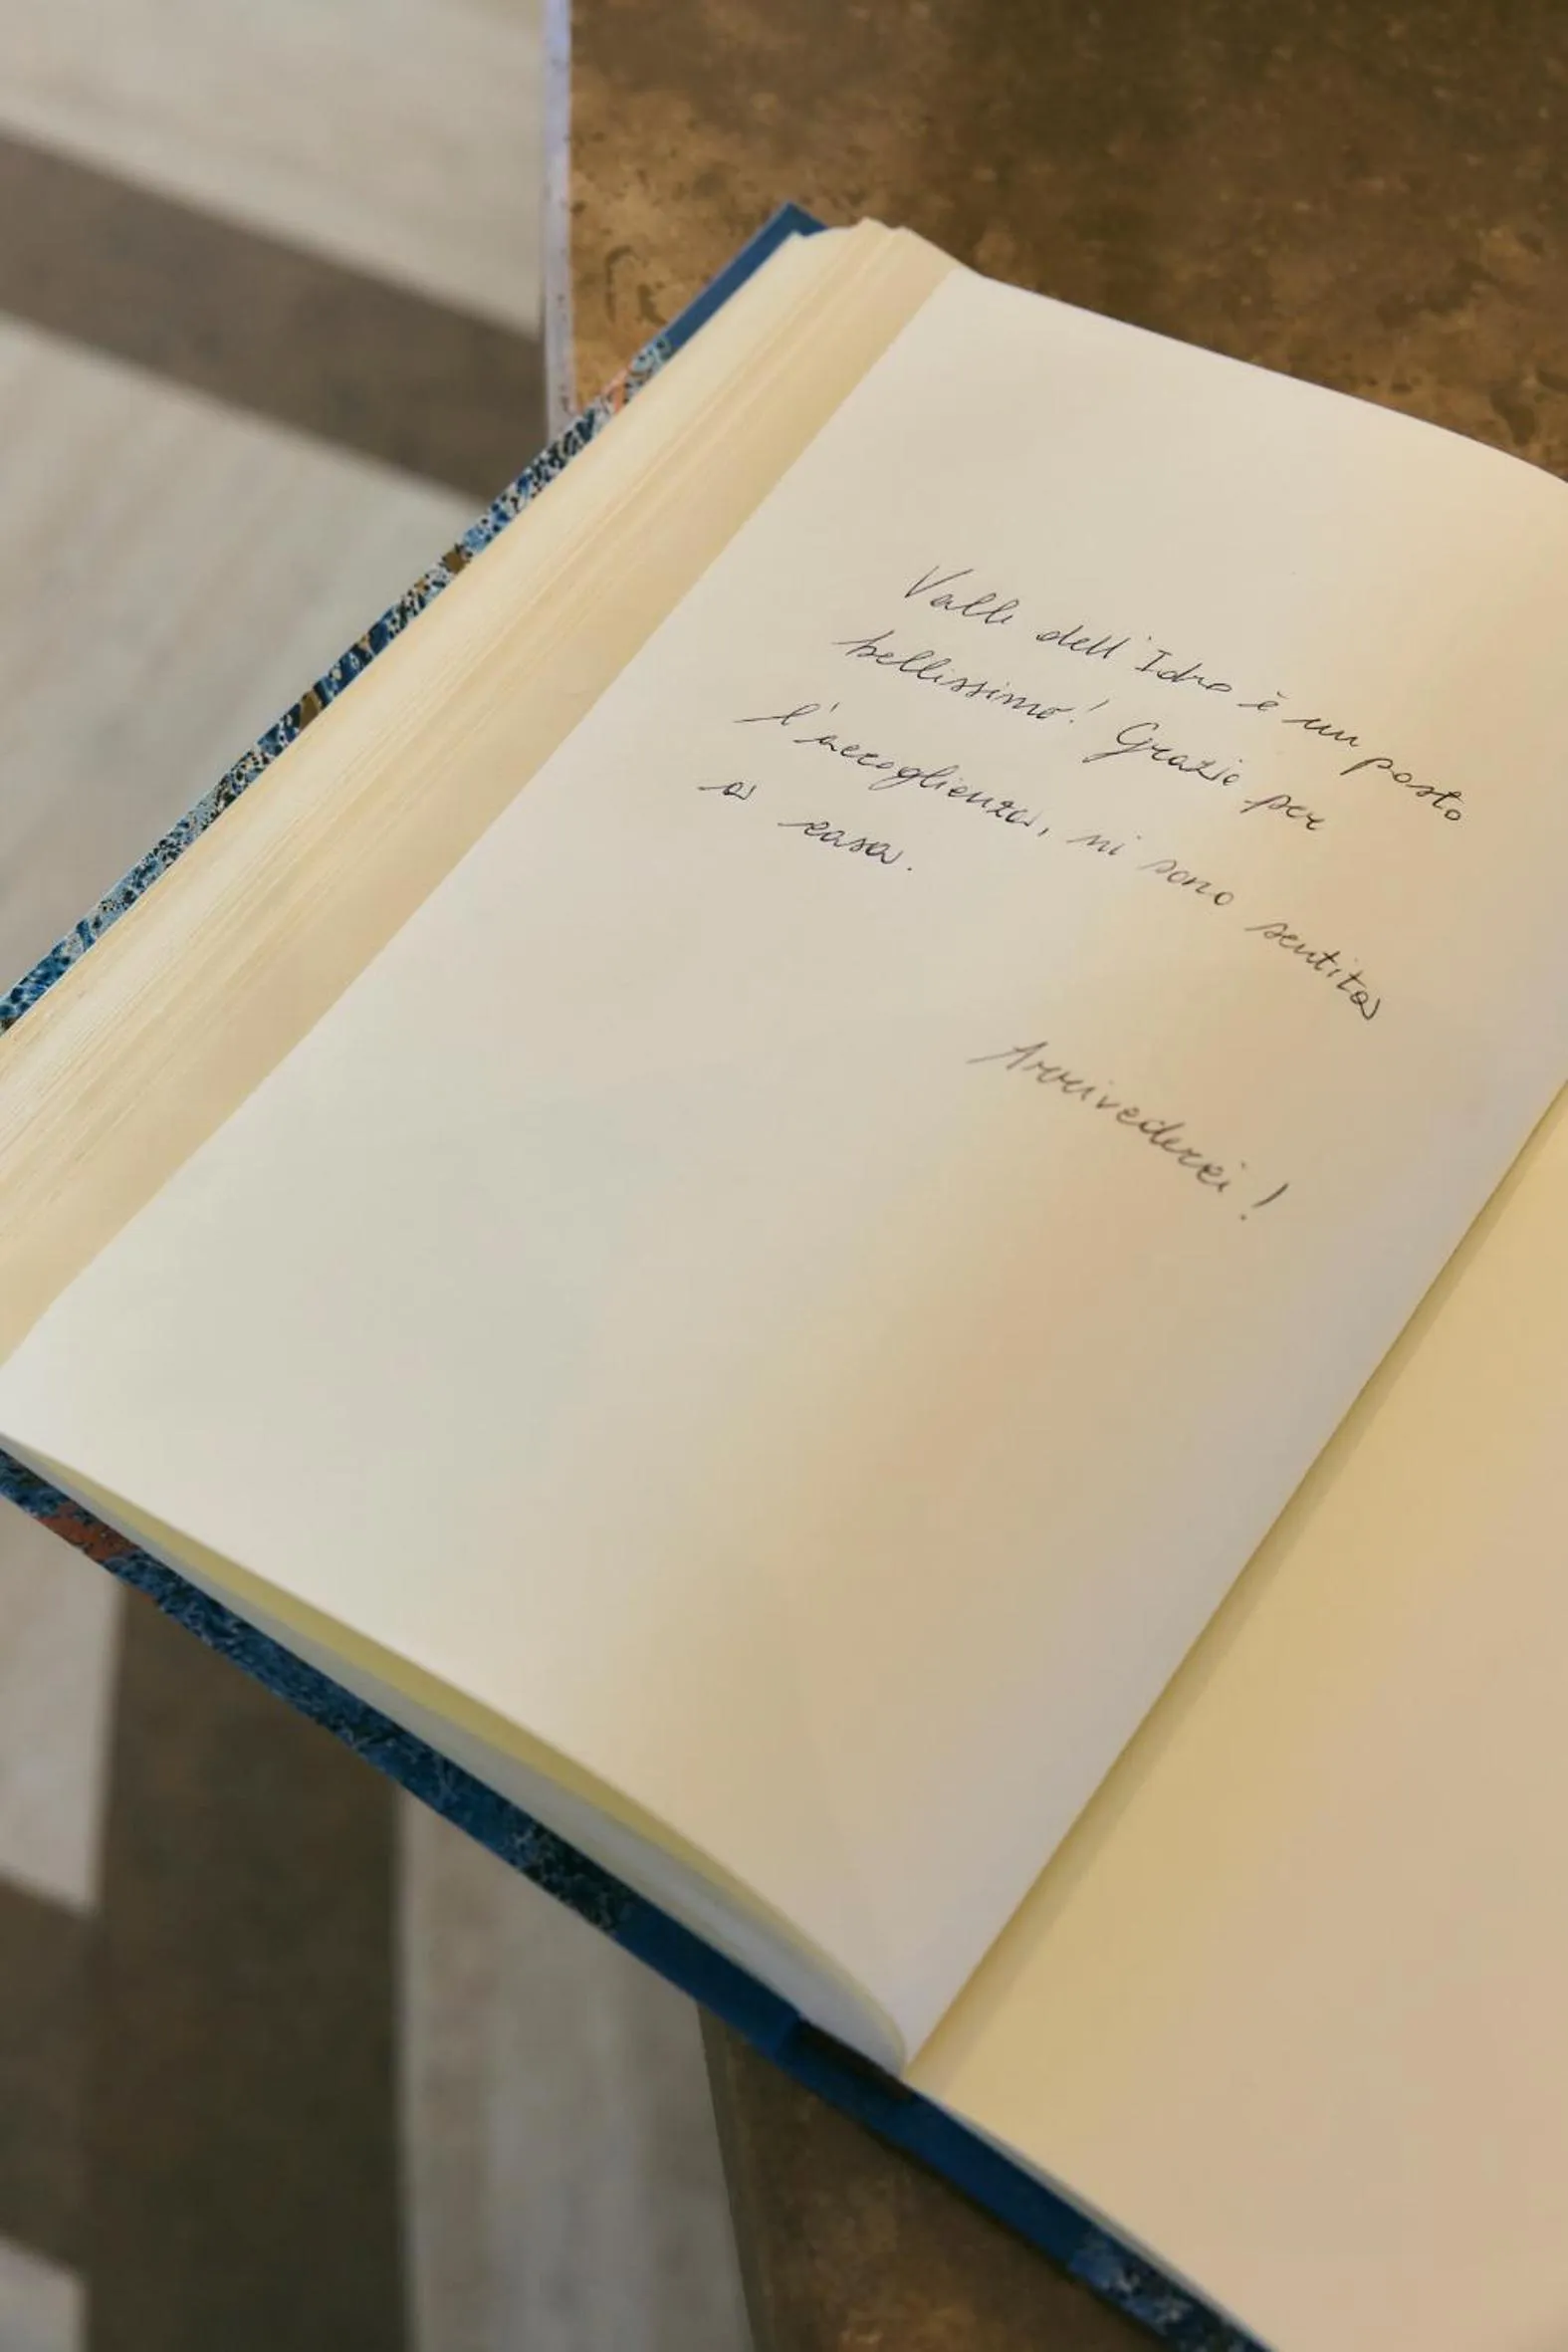 Valle dell'Idro è un posto
bellissimo! Grazie per
l'accoglienza, mi sono sentita
a casa.
Arrivederci!